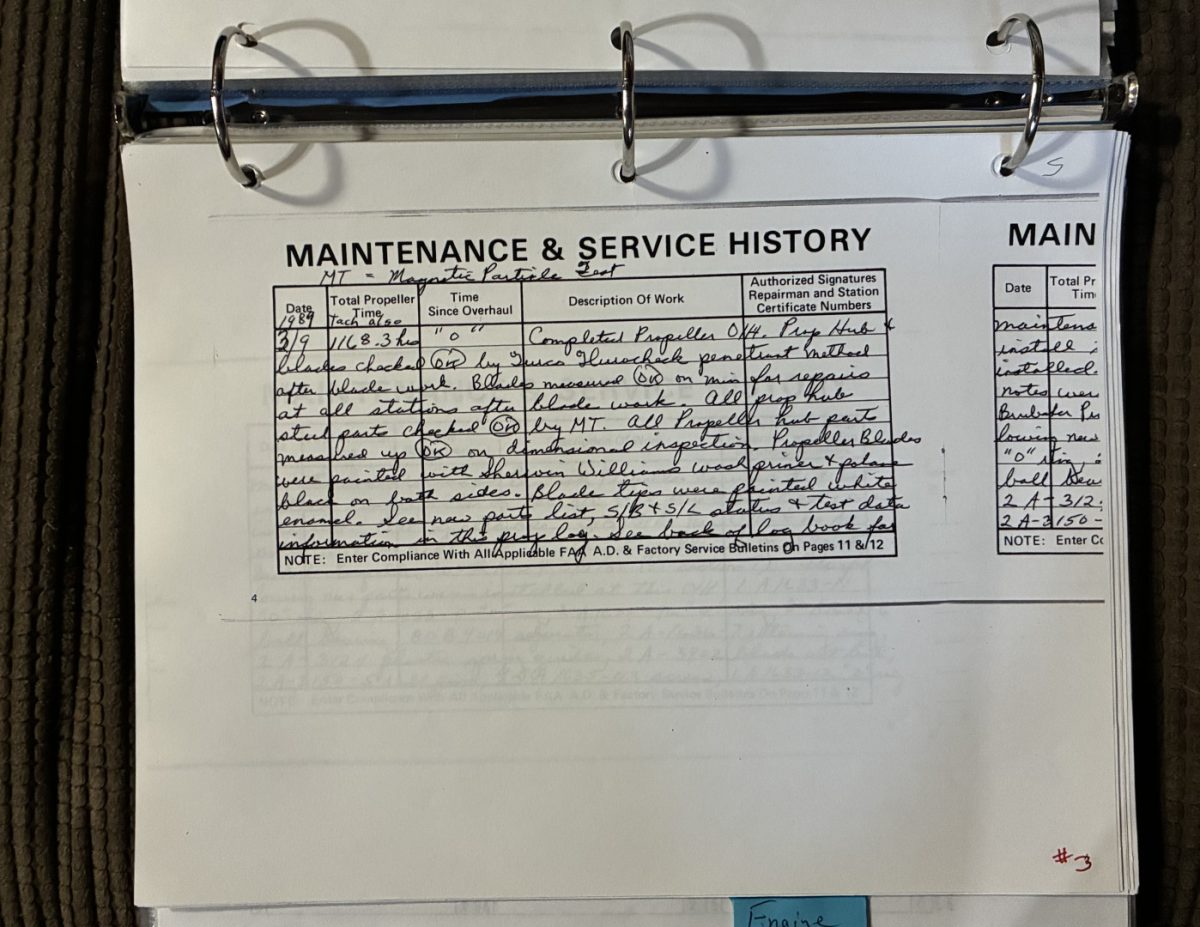 S
MAINTENANCE & SERVICE HISTORY
MT = Magnetic Particle Test
Date
1989
Total Propeller Time
Tach also
Time Since Overhaul
Description Of Work
Authorized Signatures Repairman and Station Certificate Numbers
3/9 1168.3 hrs "0" Completed Propeller O/H. Prop Hub &
blades checked OK by Turco penetrant method
after blade work. Blades measured OK on min for repairs
at all stations after blade work. All prop hub
steel parts checked OK by MT. All Propeller hub parts
measured up OK on dimensional inspection. Propeller Blades
were painted with Sherwin Williams wash primer &
black on both sides. Blade tips were painted white
enamel. See new parts list, S/B & S/L status & test data
information in this prop log. See back of log book for
NOTE: Enter Compliance With All Applicable FAA A.D. & Factory Service Bulletins On Pages 11 & 12
4
MAIN
Date
Total Pr
Tim
maintens
install
installed.
notes wer
lowing new
"0"
ball
2 A-312
2 A-3150-
NOTE: Enter Co
#3
Engine